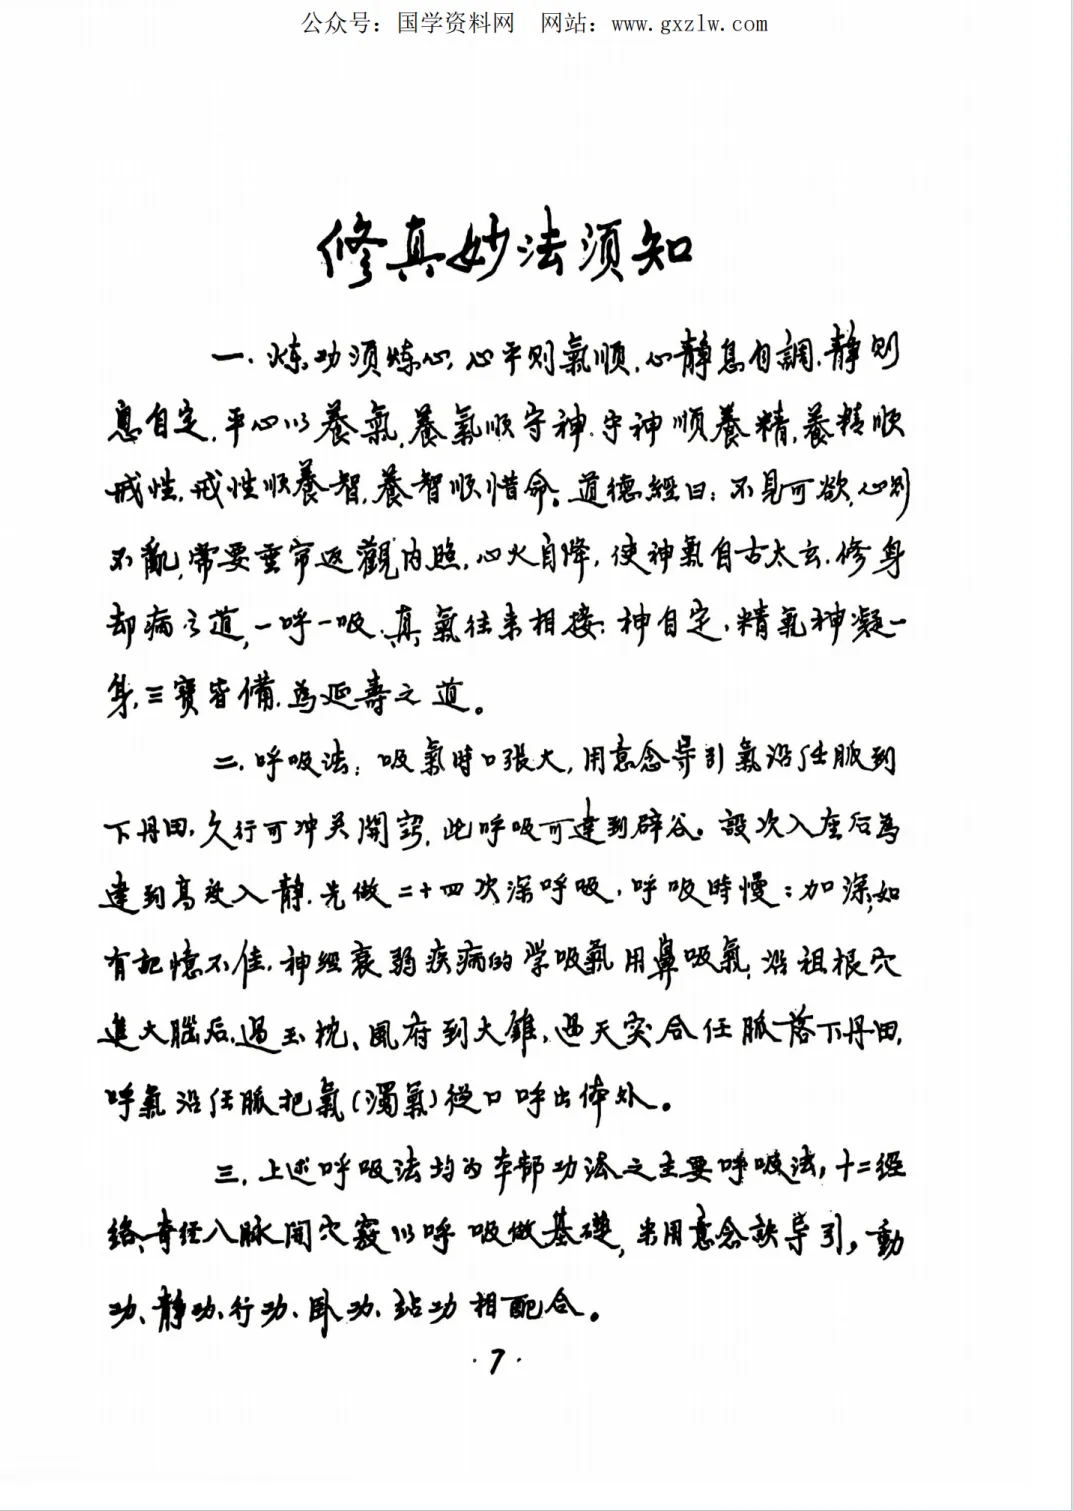 公众号：国学资料网　网站：www.gxzlw.com
修真妙法须知
一.炼功须炼心,心平则氣順.心静息自調.静则
息自定.平心以養氣,養氣順守神.守神順養精,養精順
戒性,戒性順養智,養智順惜命。道德經曰：不見可欲,心则
不亂,常要垂帘返觀内照.心火自降,使神氣自古太玄.修身
却病之道,一呼一吸.真氣往来相接;神自定,精氣神凝一
身,三寶皆備.為延壽之道。
二.呼吸法：吸氣時口張大,用意念导引氣沿任脈到
下丹田.久行可冲关開竅,此呼吸可達到辟谷。設次入座后為
達到高效入静.先做二十四次深呼吸,呼吸時慢;加深;如
有記憶不佳.神經衰弱疾病的学吸氣用鼻吸氣,沿祖根穴
進大腦后,過玉枕、風府到大錐,過天突合任脈落下丹田,
呼氣沿任脈把氣(濁氣)從口呼出体外。
三.上述呼吸法均为本部功法之主要呼吸法,十二經
络、奇径八脉開穴竅以呼吸做基礎,采用意念訣导引,動
功、静功、行功、卧功、站功相配合。
·7·